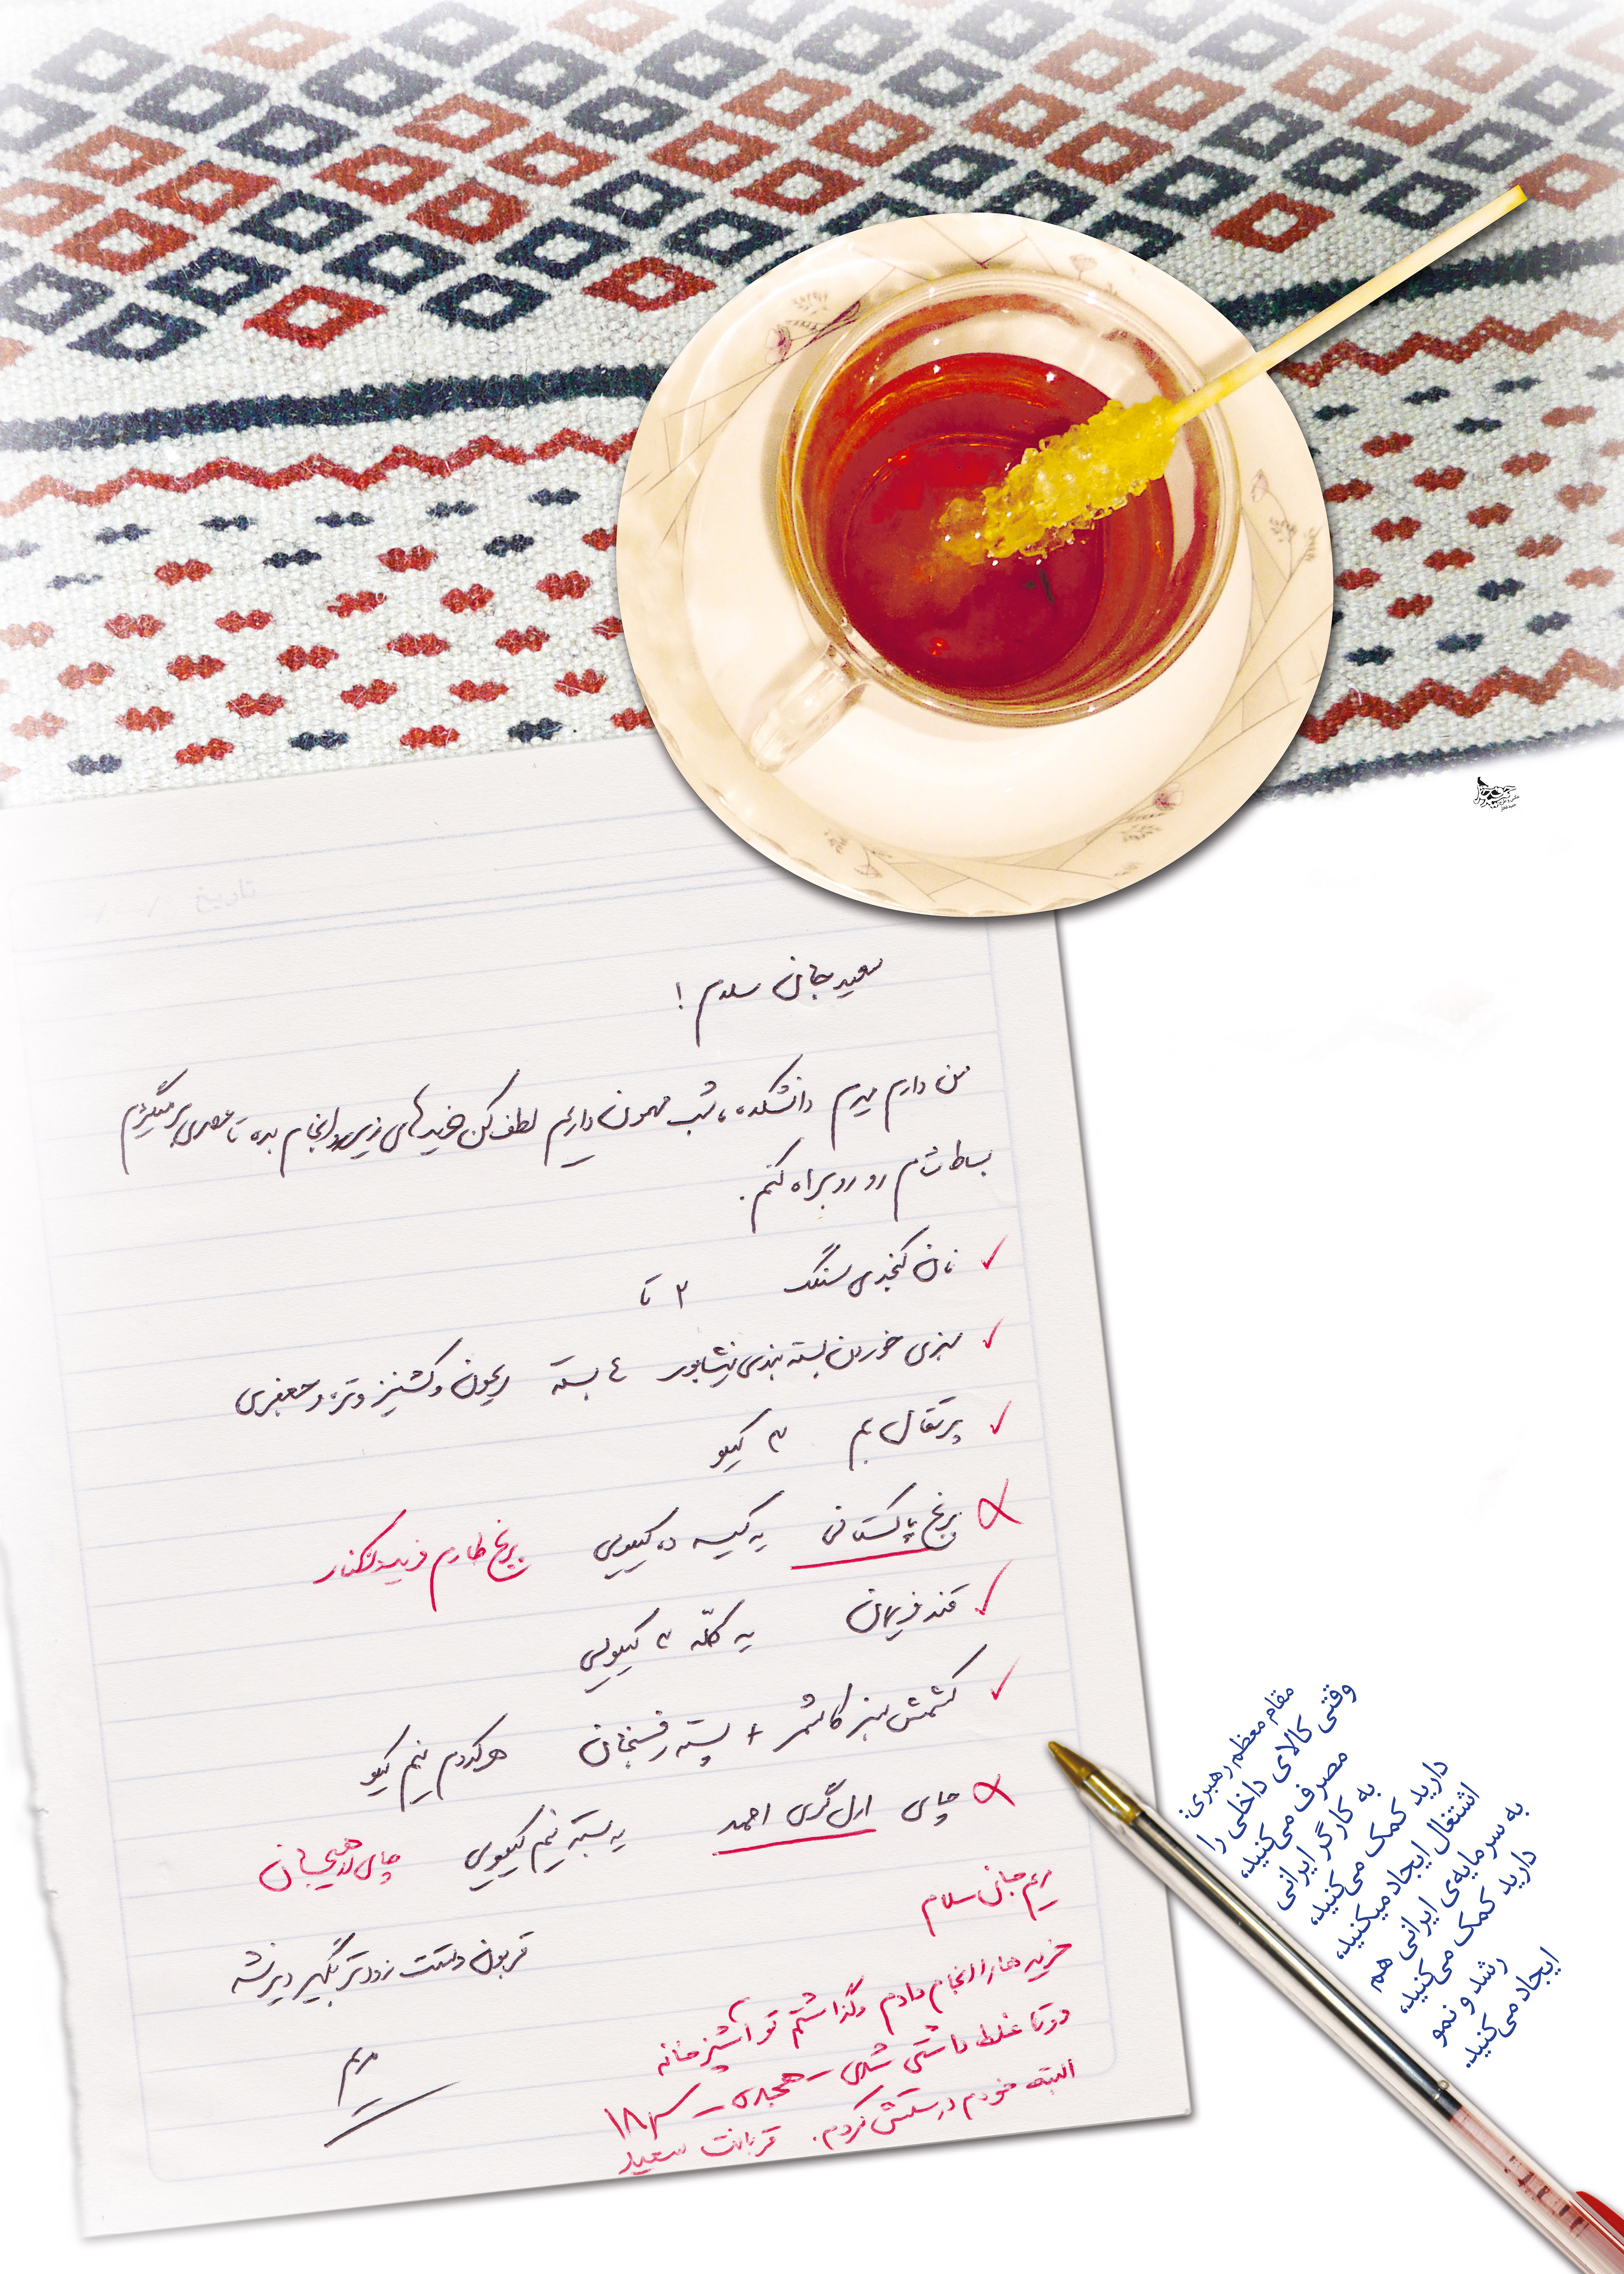 سعید جان سلام !
من دارم میرم دانشکده، شب مهمون داریم لطف کن خریدهای زیر رو انجام بده تا عصری برمیگردم
بساط شام رو روبراه کنم.
نان کنجدی سنگک ۲ تا
سبزی خوردن بسته بندی نیشابور ۴ بسته ریحون و گشنیز و تره و جعفری
پرتقال بم ۳ کیلو
برنج پاکستانی یه کیسه ده کیلویی برنج طارم فریدونکنار
قند فریمان یه کلّه ۲ کیلویی
کشمش سبز کاشمر + پسته رفسنجان هر کدوم نیم کیلو
چای ارل گری احمد یه بسته نیم کیلویی چای لاهیجان
قربون دستت زودتر بگیر دیر نشه
مریم
مریم جان سلام
خریدها را انجام دادم و گذاشتم تو آشپزخانه
دو تا غلط داشتی شدی هجده ۱۸
البته خودم درستش کردم. قربانت سعید
مقام معظم رهبری:
وقتی کالای داخلی را
مصرف می‌کنید،
به کارگر ایرانی
دارید کمک می‌کنید،
اشتغال ایجاد میکنید،
به سرمایه‌ی ایرانی هم
دارید کمک می‌کنید،
رشد و نمو
ایجاد می‌کنید.